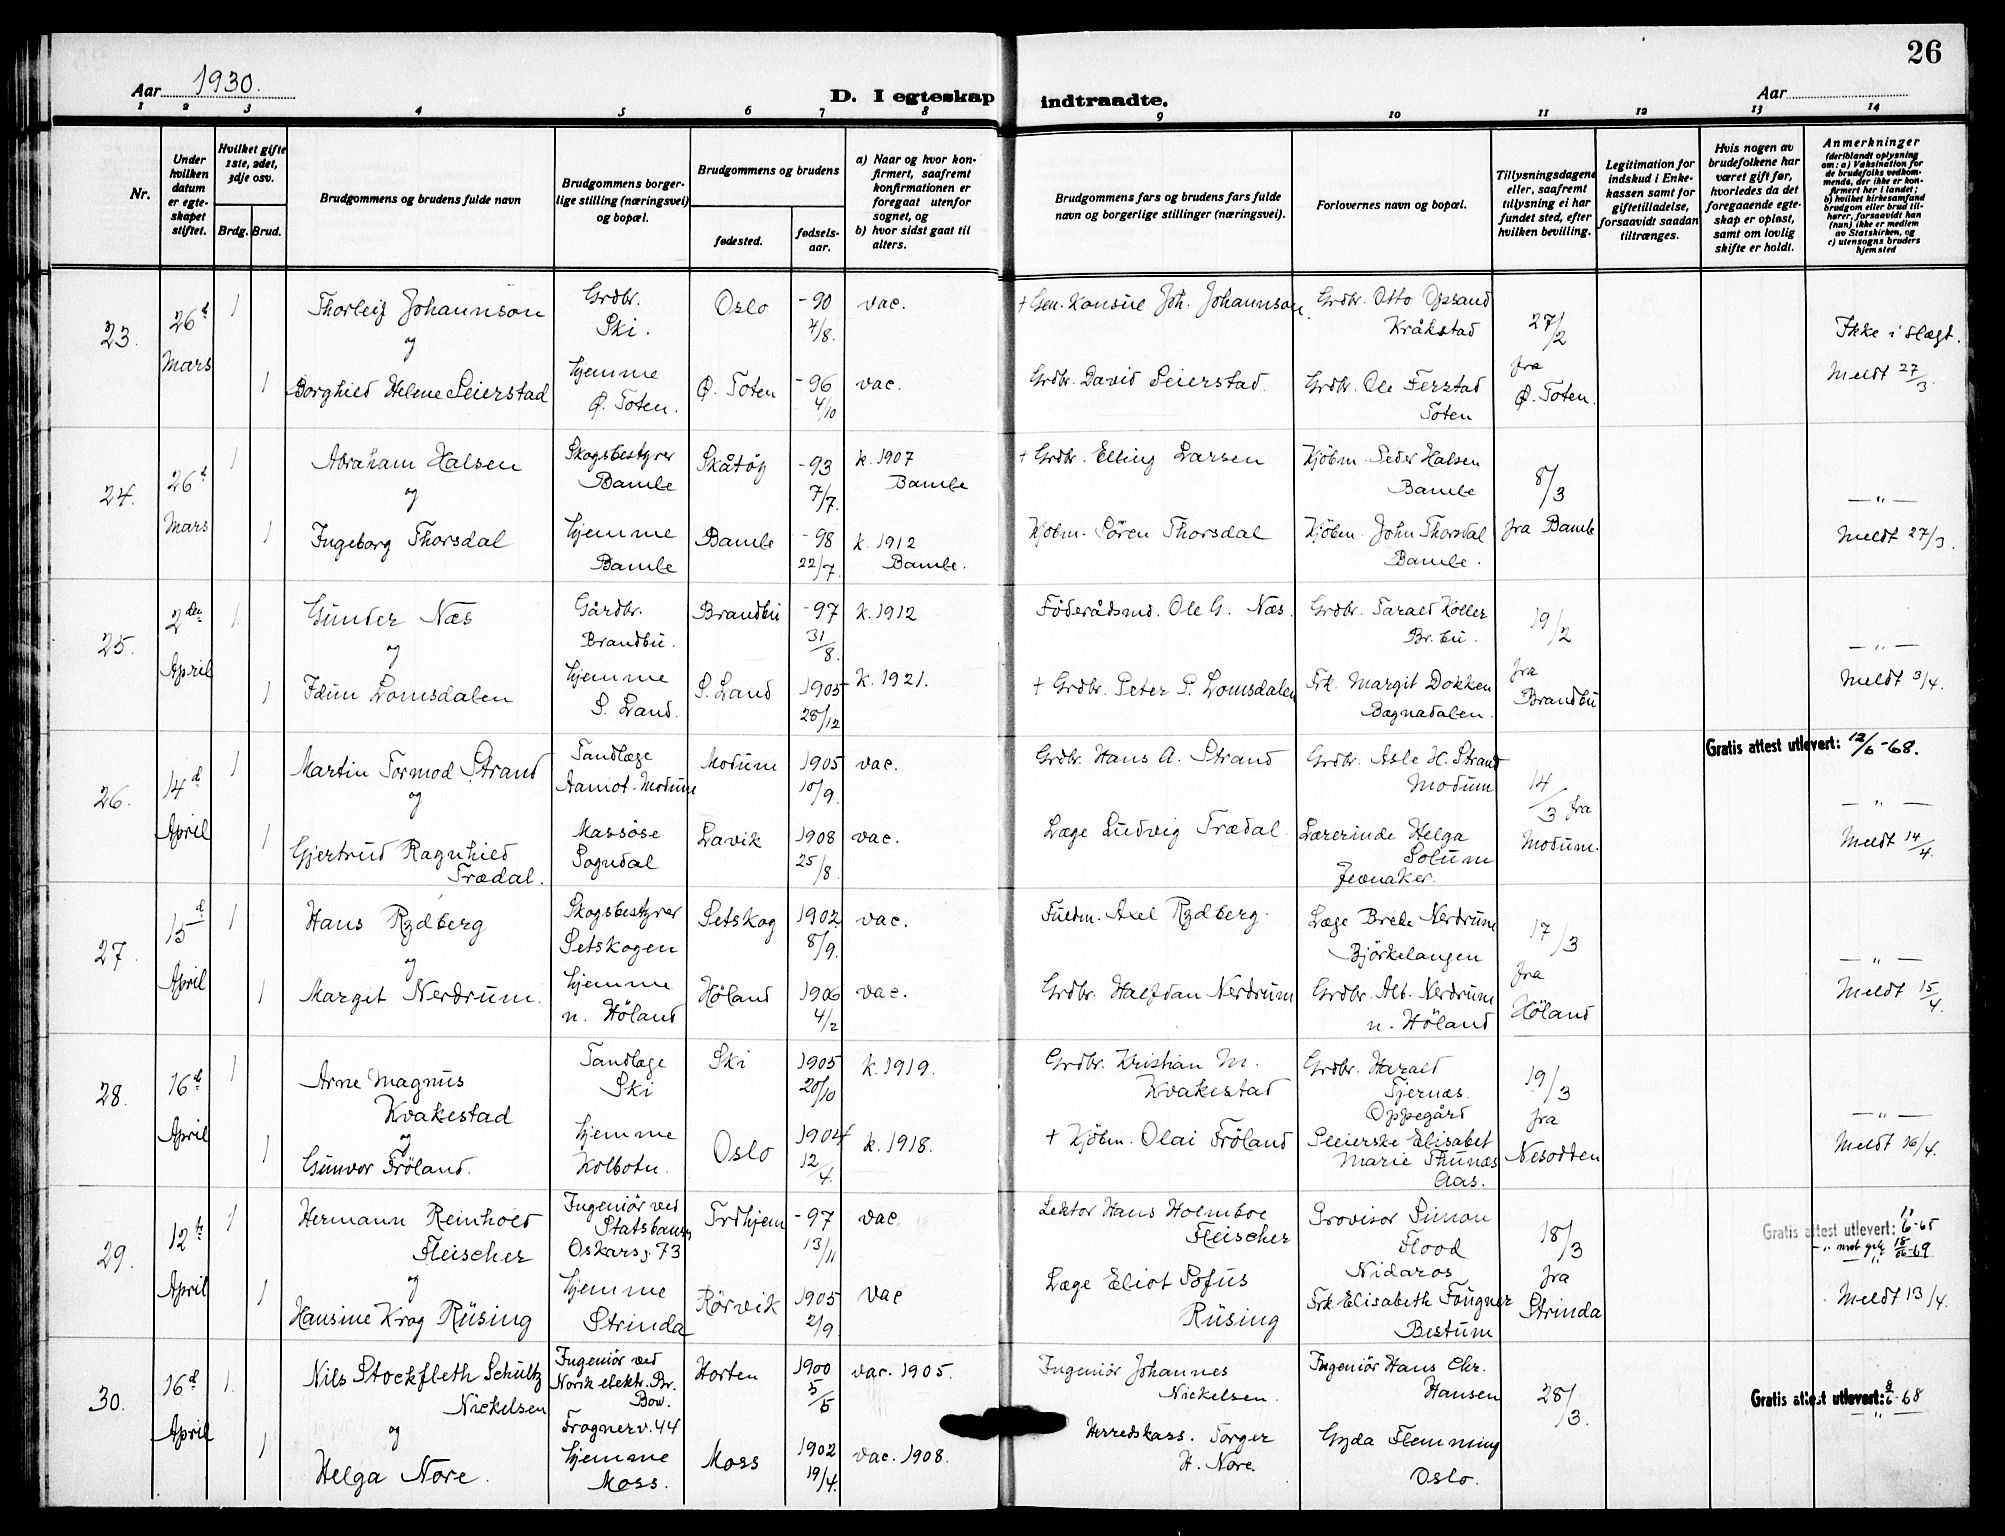 26
Aar 1930.
D. I egteskap indtraadte.
Aar
1 2 3 4 5 6 7 8 9 10 11 12 13 14
Nr.
Under hvilken datum er egte-skapet stiftet.
Hvilket gifte 1ste, 2det, 3dje osv.
Brdg. Brud.
Brudgommens og brudens fulde navn
Brudgommens borger-lige stilling (næringsvei) og bopæl.
Brudgommens og brudens
fødested.
fødsels-aar.
a) Naar og hvor kon-firmert, saafremt konfirmationen er foregaat utenfor sognet, og
b) hvor sidst gaat til alters.
Brudgommens fars og brudens fars fulde navn og borgerlige stillinger (næringsvei).
Forlovernes navn og bopæl.
Tillysningsdagene eller, saafremt tillysning ei har fundet sted, efter hvilken bevilling.
Legitimation for indskud i Enke-kassen samt for giftetilladelse, forsaavidt saadan tiltrænges.
Hvis nogen av brudefolkene har været gift før, hvorledes da det foregaaende egte-skap er opløst, samt om lovlig skifte er holdt.
Anmerkninger
(deriblandt oplysning om: a) Vaksination for de brudefolks vedkom-mende, der ikke er kon-firmert her i landet; b) hvilket kirkesamfund brudgom eller brud til-hører, forsaavidt han (hun) ikke er medlem av Statskirken, og c) utensogns bruders hjemsted
23. 26d Mars 1 Thorleif Johannson Grdbr. Ski. Oslo -90 4/8. vac. + Gen. Konsul Joh. Johannson. Grdbr. Otto Opsand Kråkstad 27/2 Ikke i slægt.
og
1 Borghild Helene Seierstad hjemme Ø. Toten. Ø. Toten -96 4/10 vac. Grdbr. David Seierstad. Grdbr. Ole Ferstad Toten fra Ø. Toten. Meldt 27/3.
24. 26d Mars 1 Abraham Halsen Skogsbestyrer Bamle Skåtöy -93 7/7. k. 1907 Bamle + Grdbr. Elling Larsen Kjöbm. Peder Halsen Bamle 8/3 — " —
og
1 Ingeborg Thorsdal hjemme Bamle Bamle -98 22/7. k. 1912 Bamle. Kjöbm. Sören Thorsdal Kjöbm. John Thorsdal Bamle. fra Bamle Meldt 27/3.
25. 2den April 1. Gunder Næs Gårdbr. Brandbu. Brandbu -97 31/8. k. 1912 Föderådsmd. Ole G. Næs. Grdbr. Tarald Koller Br. bu. 19/2 — " —
og
1 Idun Lomsdalen hjemme S. Land. S. Land 1905 28/12 k. 1921. + Grdbr. Peter P. Lomsdalen Frk. Margit Dokken Bagnadalen. fra Brandbu Meldt 3/4.
Gratis attest utlevert: 12/6-68.
26. 14d April 1 Martin Tormod Strand Tandlæge Aamot-Modum Modum 1905 10/9. vac. Grdbr. Hans A. Strand Grdbr. Asle H. Strand Modum 14/3 fra — " —
og
1 Gjertrud Ragnhild Trædal. Massöse Sogndal Lavik 1908 25/8. vac. Læge Ludvig Trædal Lærerinde Helga Solum Jevnaker. Modum. Meldt 14/4.
27. 15d April 1 Hans Rydberg Skogsbestyrer Setskogen Setskog 1902 8/9. vac. Fuldm. Axel Rydberg. Læge Brede Nerdrum Björkelangen 17/3 — " —
og
1 Margit Nerdrum. hjemme n. Höland Höland 1906 4/2 vac. Grdbr. Halfdan Nerdrum Grdbr. Alb. Nerdrum n. Höland fra Höland Meldt 15/4.
28. 16d April 1 Arne Magnus Kvakestad Tandlæge Ski Ski 1905 20/10 k. 1919. Grdbr. Kristian M. Kvakestad Grdbr. Harald Tjernæs. Oppegård 19/3 — " —
og
1 Gunvor Fröland. hjemme Kolbotn. Oslo 1904 12/4. k. 1918. + Kjöbm. Olai Fröland Pleierske Elisabet Marie Thunæs Aas. fra Nesodden Meldt 16/4.
29. 12te April 1 Hermann Reinhold Fleischer Ingeniör ved Statsbanen Oskarsg. 73 Trdhjem -97 13/11 vac. Lektor Hans Holmboe Fleischer Provisor Simon Flood Nidaros 18/3
Gratis attest utlevert: 11/6-65
og
1 Hansine Krog Rüsing hjemme Strinda Rörvik 1905 2/9. vac Læge Eliot Sofus Rüsing Frk Elisabeth Fougner Bestum fra Strinda Meldt 13/4.
30. 16d April 1. Nils Stockfleth Schultz Nickelsen Ingeniör ved Norsk elektr. Br. Bow. Frognerv. 44 Horten 1900 5/5 vac. 1905. Ingeniör Johannes Nickelsen. Ingeniör Hans Chr. Hansen 28/3.
Gratis attest utlevert: 8/6-68
og
1 Helga Nore. hjemme Moss. Moss 1902 19/4. vac. 1908. Herredskass. Torger H. Nore. Gyda Flemming Oslo.